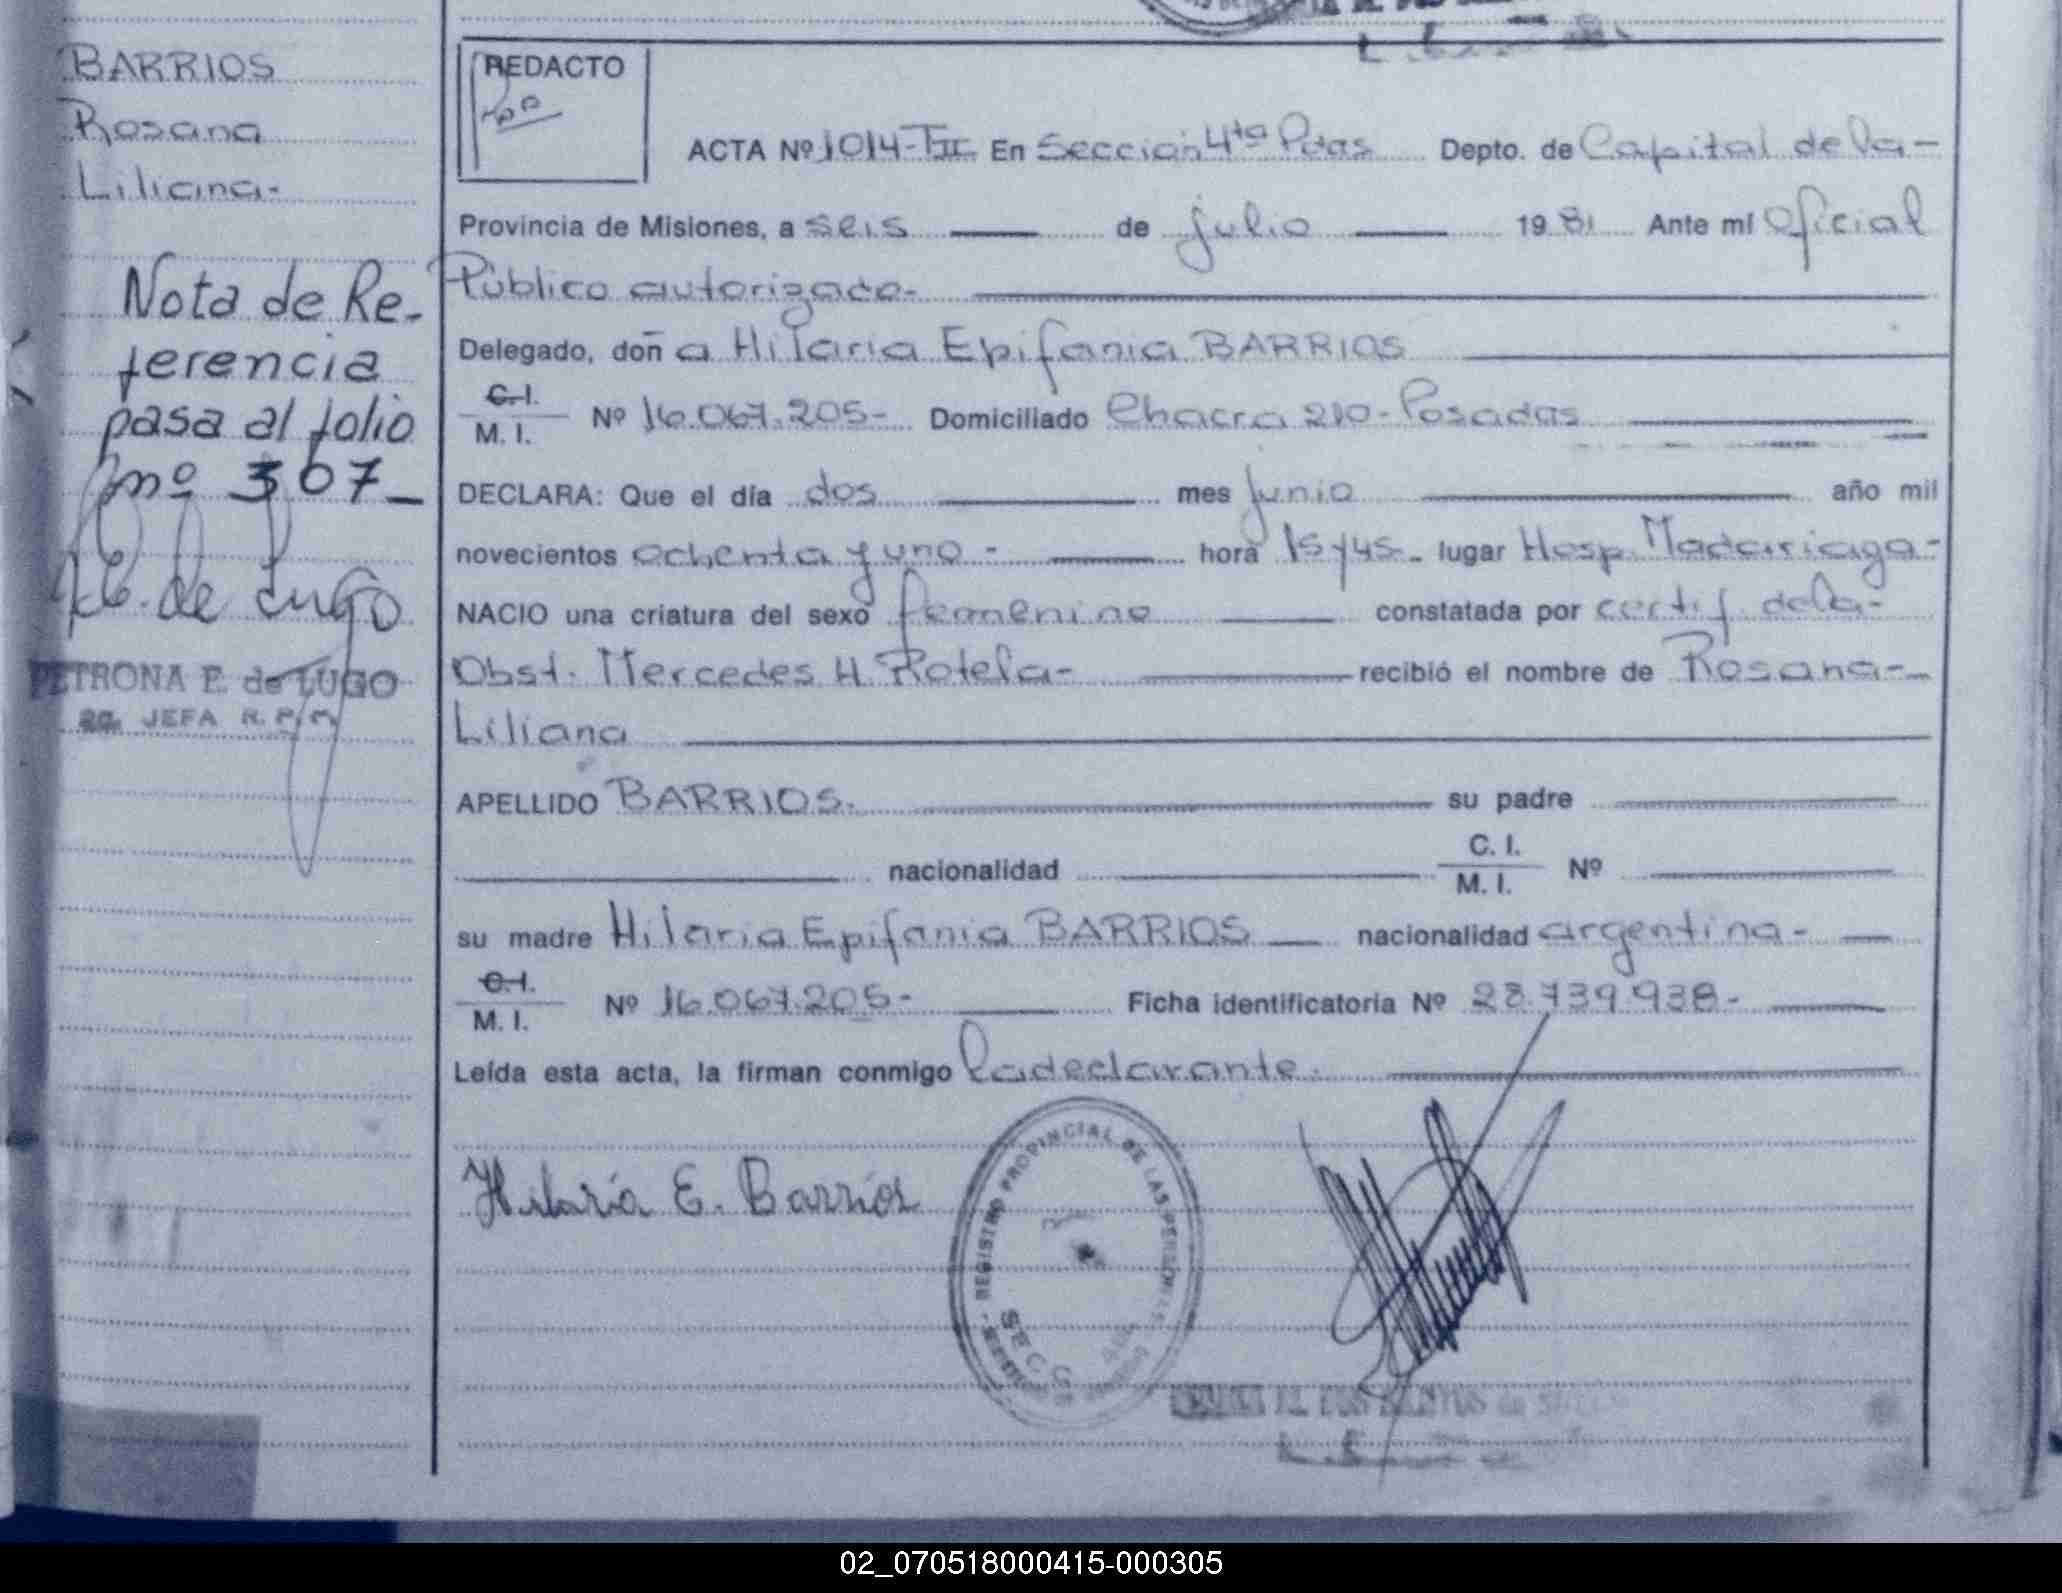 BARRIOS
Rosana
Liliana-
Nota de Re-
ferencia
pasa al folio
nº 307_
PETRONA E. de LUGO
2a. JEFA R.P.M.
REDACTO
ACTA Nº 1014-TIII En Sección 4ta Pdas Depto. de Capital de la-
Provincia de Misiones, a seis de julio 1981 Ante mí Oficial
Público autorizado-
Delegado, doña Hilaria Epifania BARRIOS
C.I.
M. I. Nº 16.067.205- Domiciliado Chacra 210-Posadas
DECLARA: Que el día dos mes junio año mil
novecientos ochenta y uno- hora 15y45- lugar Hosp. Madariaga-
NACIO una criatura del sexo femenino constatada por certif. de la-
Obst. Mercedes H. Rotela- recibió el nombre de Rosana-
Liliana
APELLIDO BARRIOS. su padre
nacionalidad C. I.
M. I. Nº
su madre Hilaria Epifania BARRIOS nacionalidad argentina-
C.I.
M. I. Nº 16.067.205- Ficha identificatoria Nº 28.739.938-
Leída esta acta, la firman conmigo la declarante.
Hilaria E. Barrios
REGISTRO PROVINCIAL DE LAS PERSONAS
SECC
02_070518000415-000305